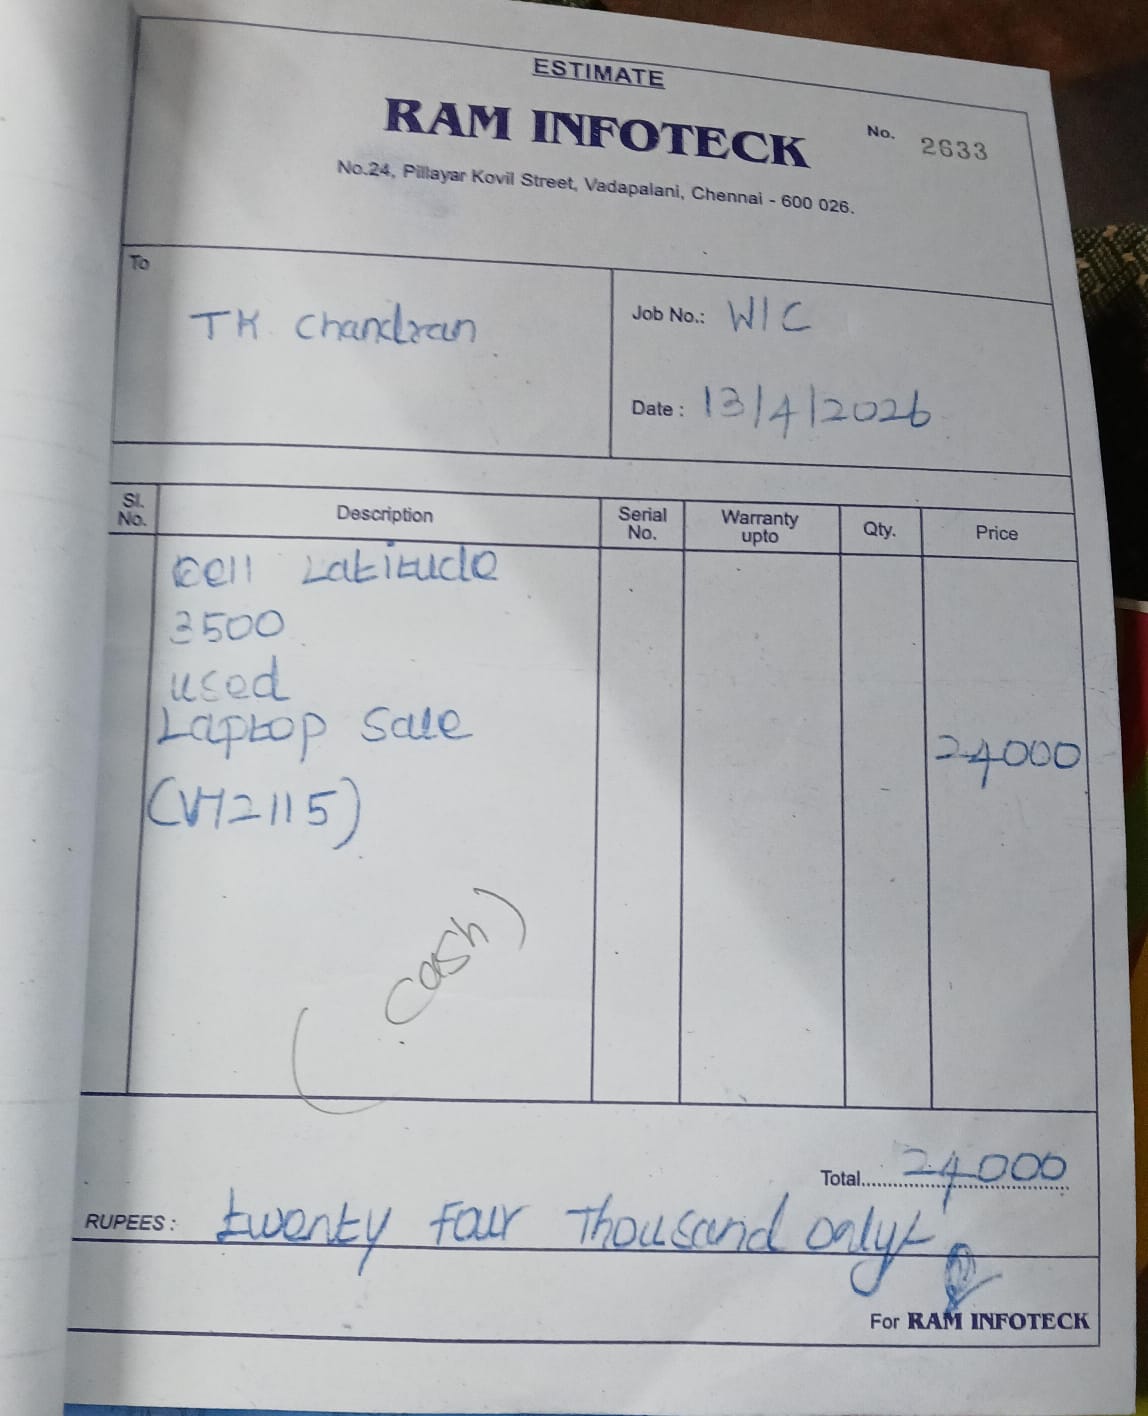 ESTIMATE
RAM INFOTECK
No. 2633
No.24, Pillayar Kovil Street, Vadapalani, Chennai - 600 026.
To
TK Chandran
Job No.: WIC
Date : 13/4/2026
Sl. No. Description Serial No. Warranty upto Qty. Price
Dell Latitude
3500
used
Laptop Sale
24000
(VH2115)
(cash)
Total 24000
RUPEES : twenty four Thousand only
For RAM INFOTECK